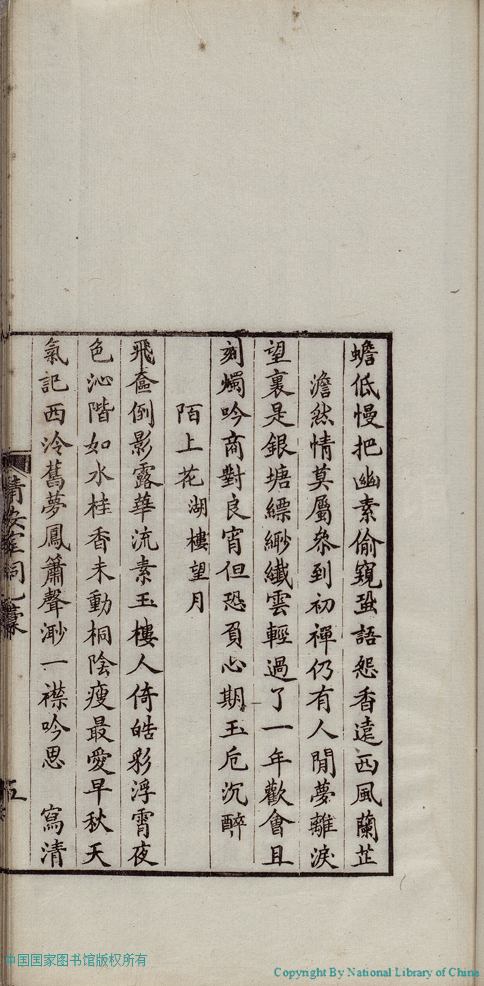 蟾低慢把幽素偷窺蛩語怨香遠西風蘭芷
澹然情莫屬叅到初禪仍有人間夢離淚
望裏是銀塘縹緲纖雲輕過了一年歡會且
刻燭吟商對良宵但恐負心期玉卮沉醉
陌上花湖樓望月
飛奩倒影露華流素玉樓人倚皓彩浮霄夜
色沁階如水桂香未動桐陰瘦最愛早秋天
氣記西泠舊夢鳳簫聲渺一襟吟思 寫清
詞
五
中国国家图书馆版权所有
Copyright By National Library of China